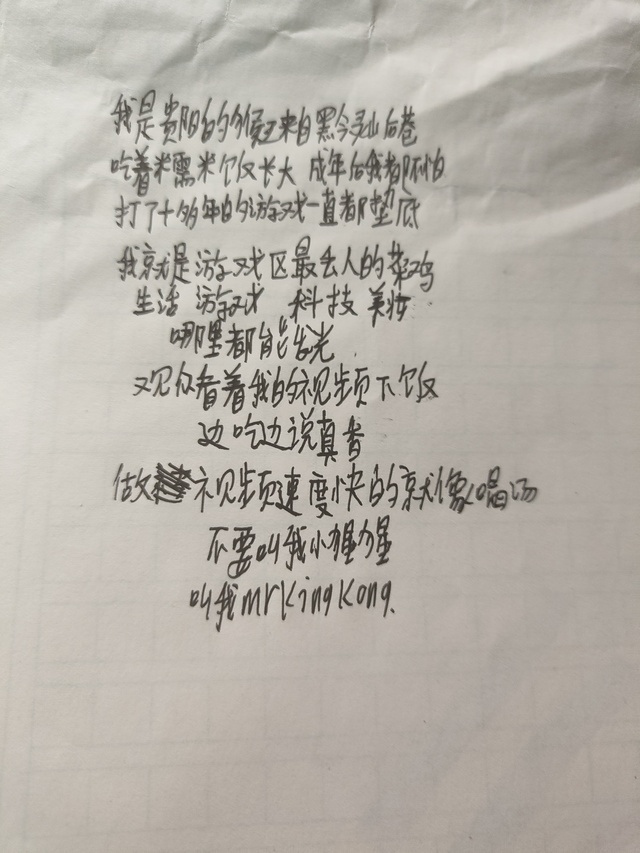 我是贵阳的猴王来自黔灵山后巷
吃着糯米饭长大 成年后我都不怕
打了十多年的游戏一直都垫底
我就是游戏区最丢人的菜鸡
生活 游戏 科技 美妆
哪里都能发光
观众看着我的视频下饭
边吃边说真香
做视频速度快的就像喝汤
不要叫我小猩猩
叫我mrKingKong.